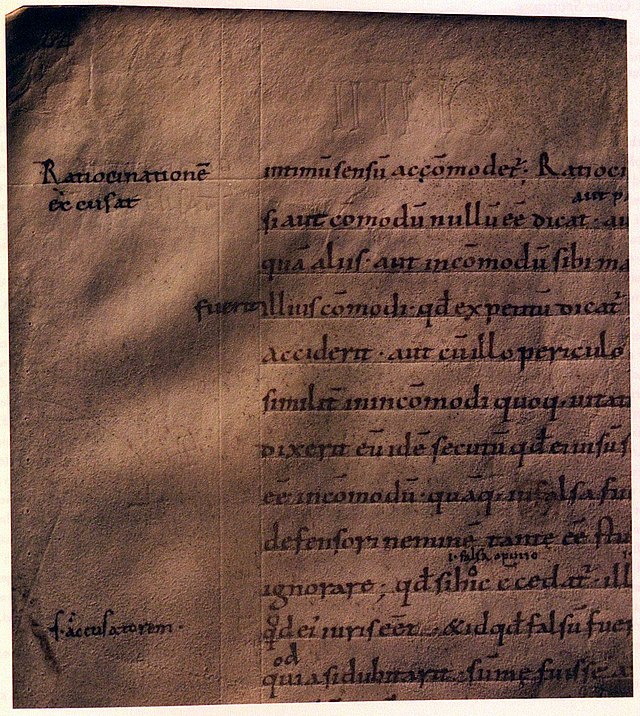 IIII
Ratiocinationē
excusat
intimū sensū accōmodet. Ratioci
aut p
si aut cōmodū nullū eē dicat. au
quā aliis. aut incōmodū sibi ma
fuerit illius cōmodi. qđ expetitū dicat
acciderit. aut cū illo periculo
similit in incōmodi quoq. uitat
dixerit eū idē secutū qđ ei uisū s
eē incōmodū. quāq. in falsa fu
defensori neminē tante eē stu
i. falsa opinio
ignorare; qđ si hic cced at. ill
s. accusatorem.
qđ ei iuris eēt. & id qđ falsū fuer
od
quasi dubitarit. sūme fuisse a